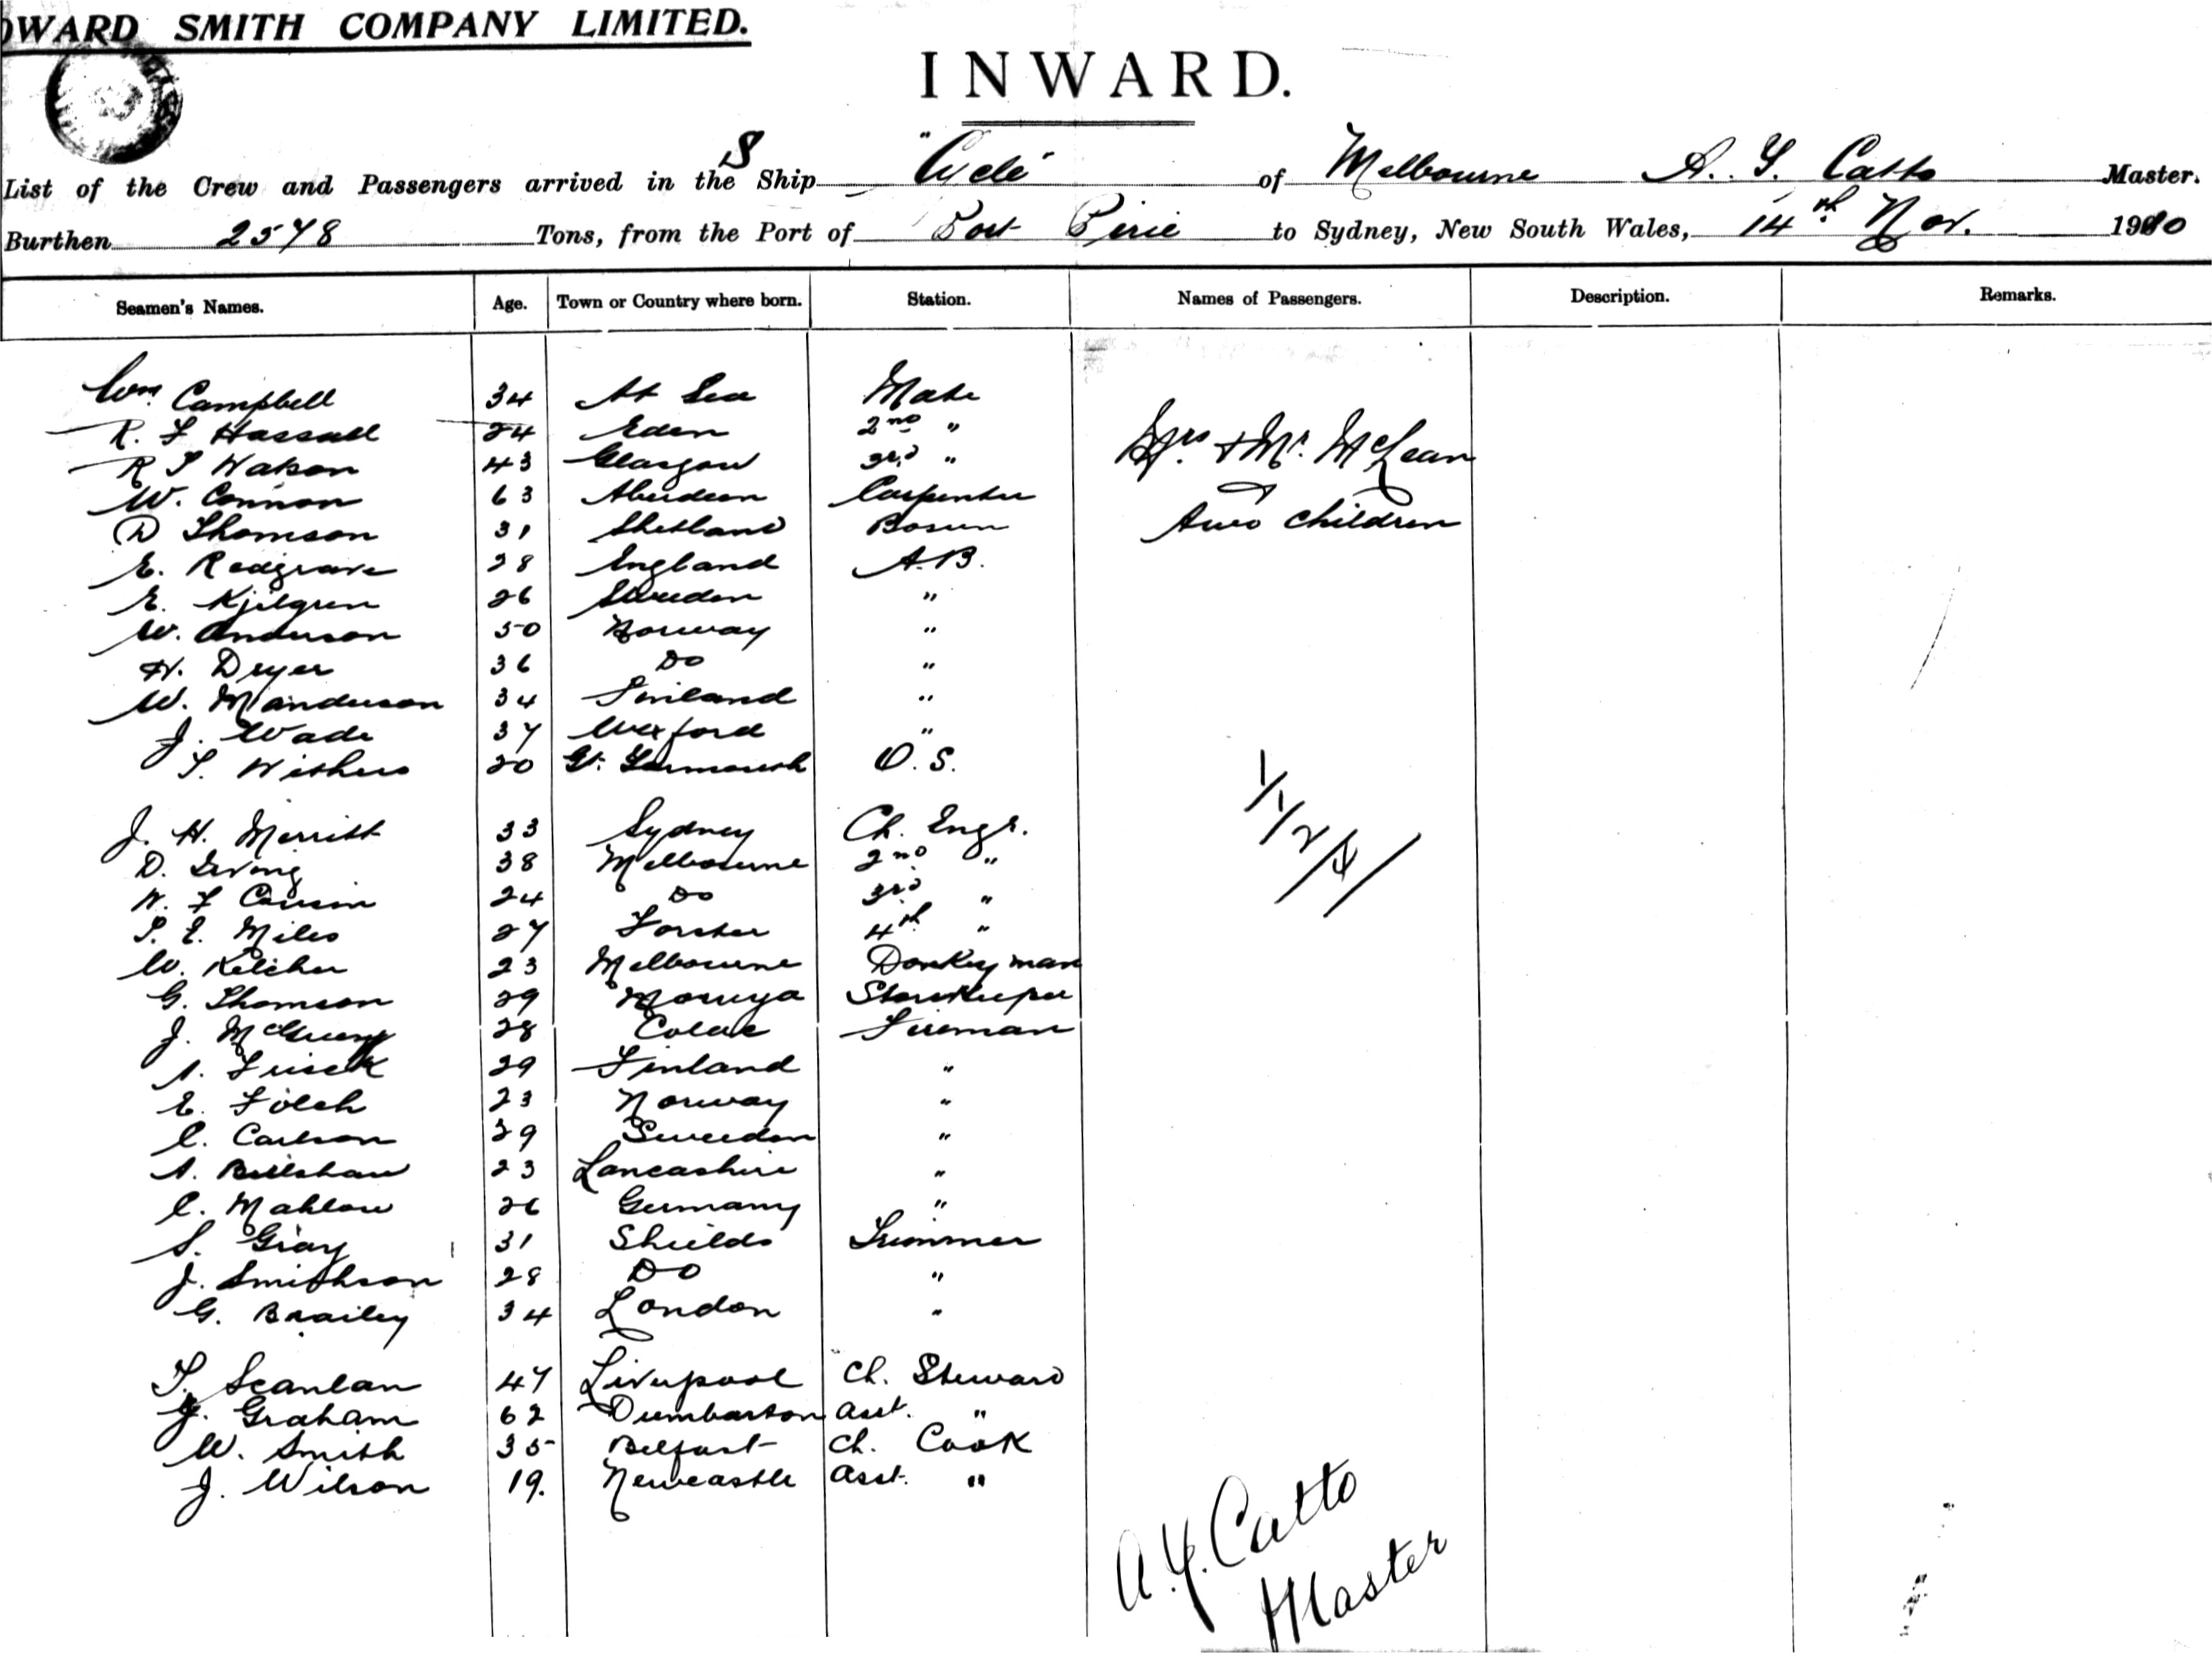 OWARD SMITH COMPANY LIMITED.
INWARD.
List of the Crew and Passengers arrived in the S Ship " of Melbourne A. Y. Catto Master.
Burthen 2578 Tons, from the Port of Port Pirie to Sydney, New South Wales, 14th Nov. 1910
Seamen's Names. Age. Town or Country where born. Station. Names of Passengers. Description. Remarks.
Wm Campbell 34 At Sea Mate
R. F Hassall 24 Eden 2nd "
R T Watson 43 Glasgow 3rd " Mrs + Mr. McLean
W. Connon 63 Aberdeen Carpenter
D Thomson 31 Shetland Bosun two children
E. Redgrave 28 England A.B.
E. Kjelgren 26 Sweeden "
W. Anderson 50 Norway "
H. Dryer 36 Do "
W. Manderson 34 Finland "
J. Wade 37 Wexford "
T. Withers 20 Gt. Yarmouth O.S.
1/1/2/4/
J. H. Merritt 33 Sydney Ch. Engr.
D. Irving 38 Melbourne 2nd "
W. F 24 Do 3rd "
T. E. Miles 27 Forster 4th "
W. Kelcher 23 Melbourne Donkeyman
G. Thomson 29 Moruya Storekeeper
J. 28 Colac Fireman
A. 29 Finland "
E. 23 Norway "
C. Carlson 29 Sweeden "
A. Billshaw 23 Lancashire "
C. Mahlow 26 Germany "
S. Gray 31 Shields Trimmer
J. Smithson 28 Do "
G. Brailey 34 London "
T. Scanlan 47 Liverpool Ch. Steward
J. Graham 62 Dumbarton Asst. "
W. Smith 35 Belfast Ch. Cook
J. Wilson 19. Newcastle Asst. "
A. Y. Catto
Master